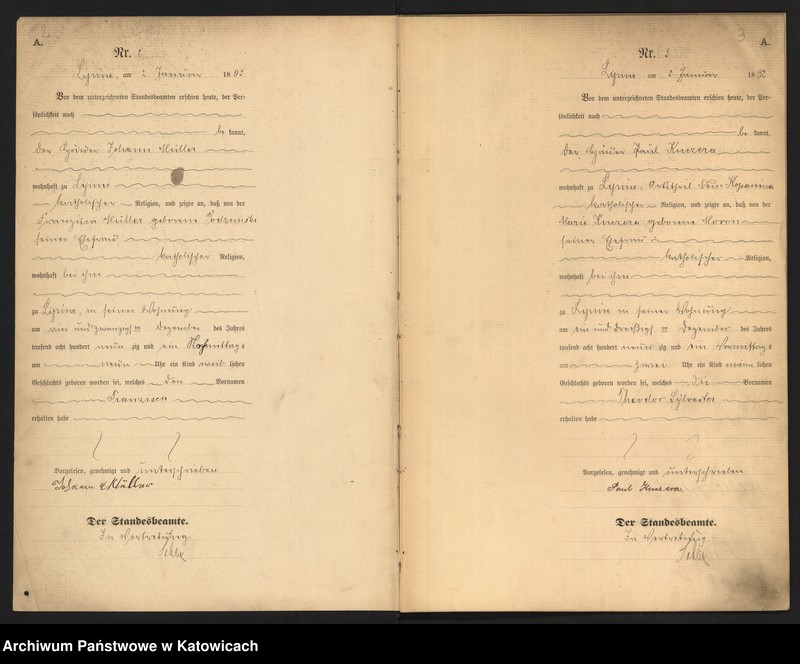 2
A.
Nr. 2
Lipine, am 2 Januar 1892
Vor dem unterzeichneten Standesbeamten erschien heute, der Per-
sönlichkeit nach
be kannt,
der Johann Müller
wohnhaft zu Lipine
katholischer Religion, und zeigte an, daß von der
Müller geborene
seiner Ehefrau
katholischer Religion,
wohnhaft bei ihm
zu Lipine, in seiner Wohnung
am ein und zwanzigsten Dezember des Jahres
tausend acht hundert neun zig und ein Nachmittag s
um neun Uhr ein Kind weib lichen
Geschlechts geboren worden sei, welches den Vornamen
Franziska
erhalten habe
Vorgelesen, genehmigt und unterschrieben
Johann Müller
Der Standesbeamte.
In Vertretung.
3
A.
Nr. 3
Lipine am 2 Januar 1892
Vor dem unterzeichneten Standesbeamten erschien heute, der Per-
sönlichkeit nach
be kannt,
der Paul Kuczera
wohnhaft zu Lipine, Ortstheil
katholischer Religion, und zeigte an, daß von der
Marie Kuczera geborene
seiner Ehefrau
katholischer Religion,
wohnhaft bei ihm
zu Lipine in seiner Wohnung
am ein und dreißigsten Dezember des Jahres
tausend acht hundert neun zig und ein Vormittag s
um zwei Uhr ein Kind männ lichen
Geschlechts geboren worden sei, welches die Vornamen
Theodor Sylvester
erhalten habe
Vorgelesen, genehmigt und unterschrieben
Paul Kuczera
Der Standesbeamte.
In Vertretung.
Archiwum Państwowe w Katowicach